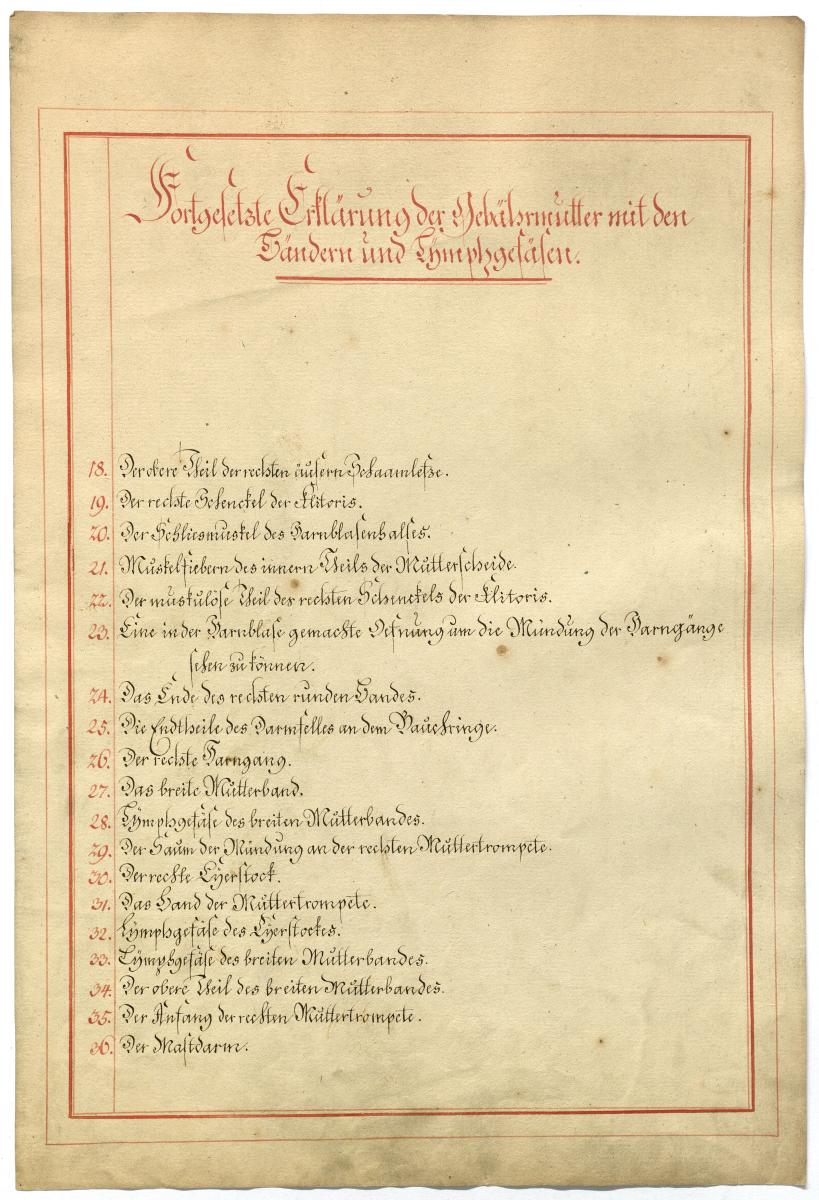 Fortgesetzte Erklärung der Gebährmutter mit den
Bändern und Lÿmphgefäsen.
18. Der obere Theil der rechten äusern Schaamlefze.
19. Der rechte Schenckel der Klitoris.
20. Der Schliesmuskel des Harnblasenhalses.
21. Muskelfiebern des innern Theils der Mutterscheide.
22. Der muskulöse Theil des rechten Schenckels der Klitoris.
23. Eine in der Harnblase gemachte Oefnung um die Mündung der Harngänge
sehen zu können.
24. Das Ende des rechten runden Bandes.
25. Die Endtheile des Darmfelles an dem Bauchringe.
26. Der rechte Harngang.
27. Das breite Mutterband.
28. Lÿmphgefäse des breiten Mutterbandes.
29. Der Saum der Mündung an der rechten Muttertrompete.
30. Der rechte Eÿerstock.
31. Das Band der Muttertrompete.
32. Lÿmphgefäse des Eÿerstockes.
33. Lÿmphgefäse des breiten Mutterbandes.
34. Der obere Theil des breiten Mutterbandes.
35. Der Anfang der rechten Muttertrompete.
36. Der Mastdarm.